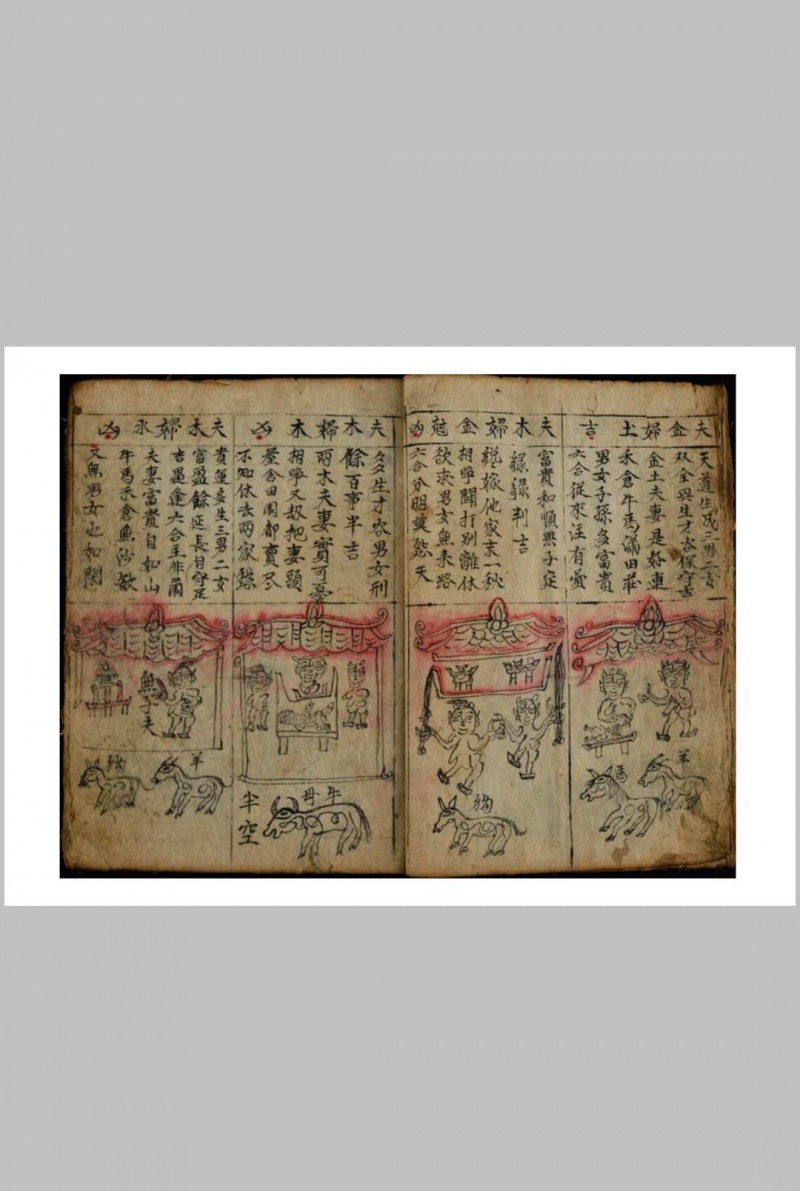 夫金婦土 吉
天道生成三男二女
双全與生才谷保守吉
金土夫妻是好連
禾倉牛馬滿田庄
男女子孫多富貴
六合從來注有憂
羊
馬
夫木婦金 尅凶
富貴和順與子定
緑緑判吉
縱嫁他家末一秋
相爭鬪打别離休
欲求男女魚来路
六合分明莫怨天
狗
夫木婦木 凶
多生才谷男女刑
餘百事半吉
兩木夫妻實可憂
相爭又殺把妻頭
屋舍田園都賣尽
不知休去兩家
牛母
半空
夫木婦水 凶
貴運多生三男二女
富盈餘延長自守足
吉星逢六合主非
夫妻富貴自如山
牛馬禾倉魚沙数
又魚男女也如閑
魚子夫
羊
狗